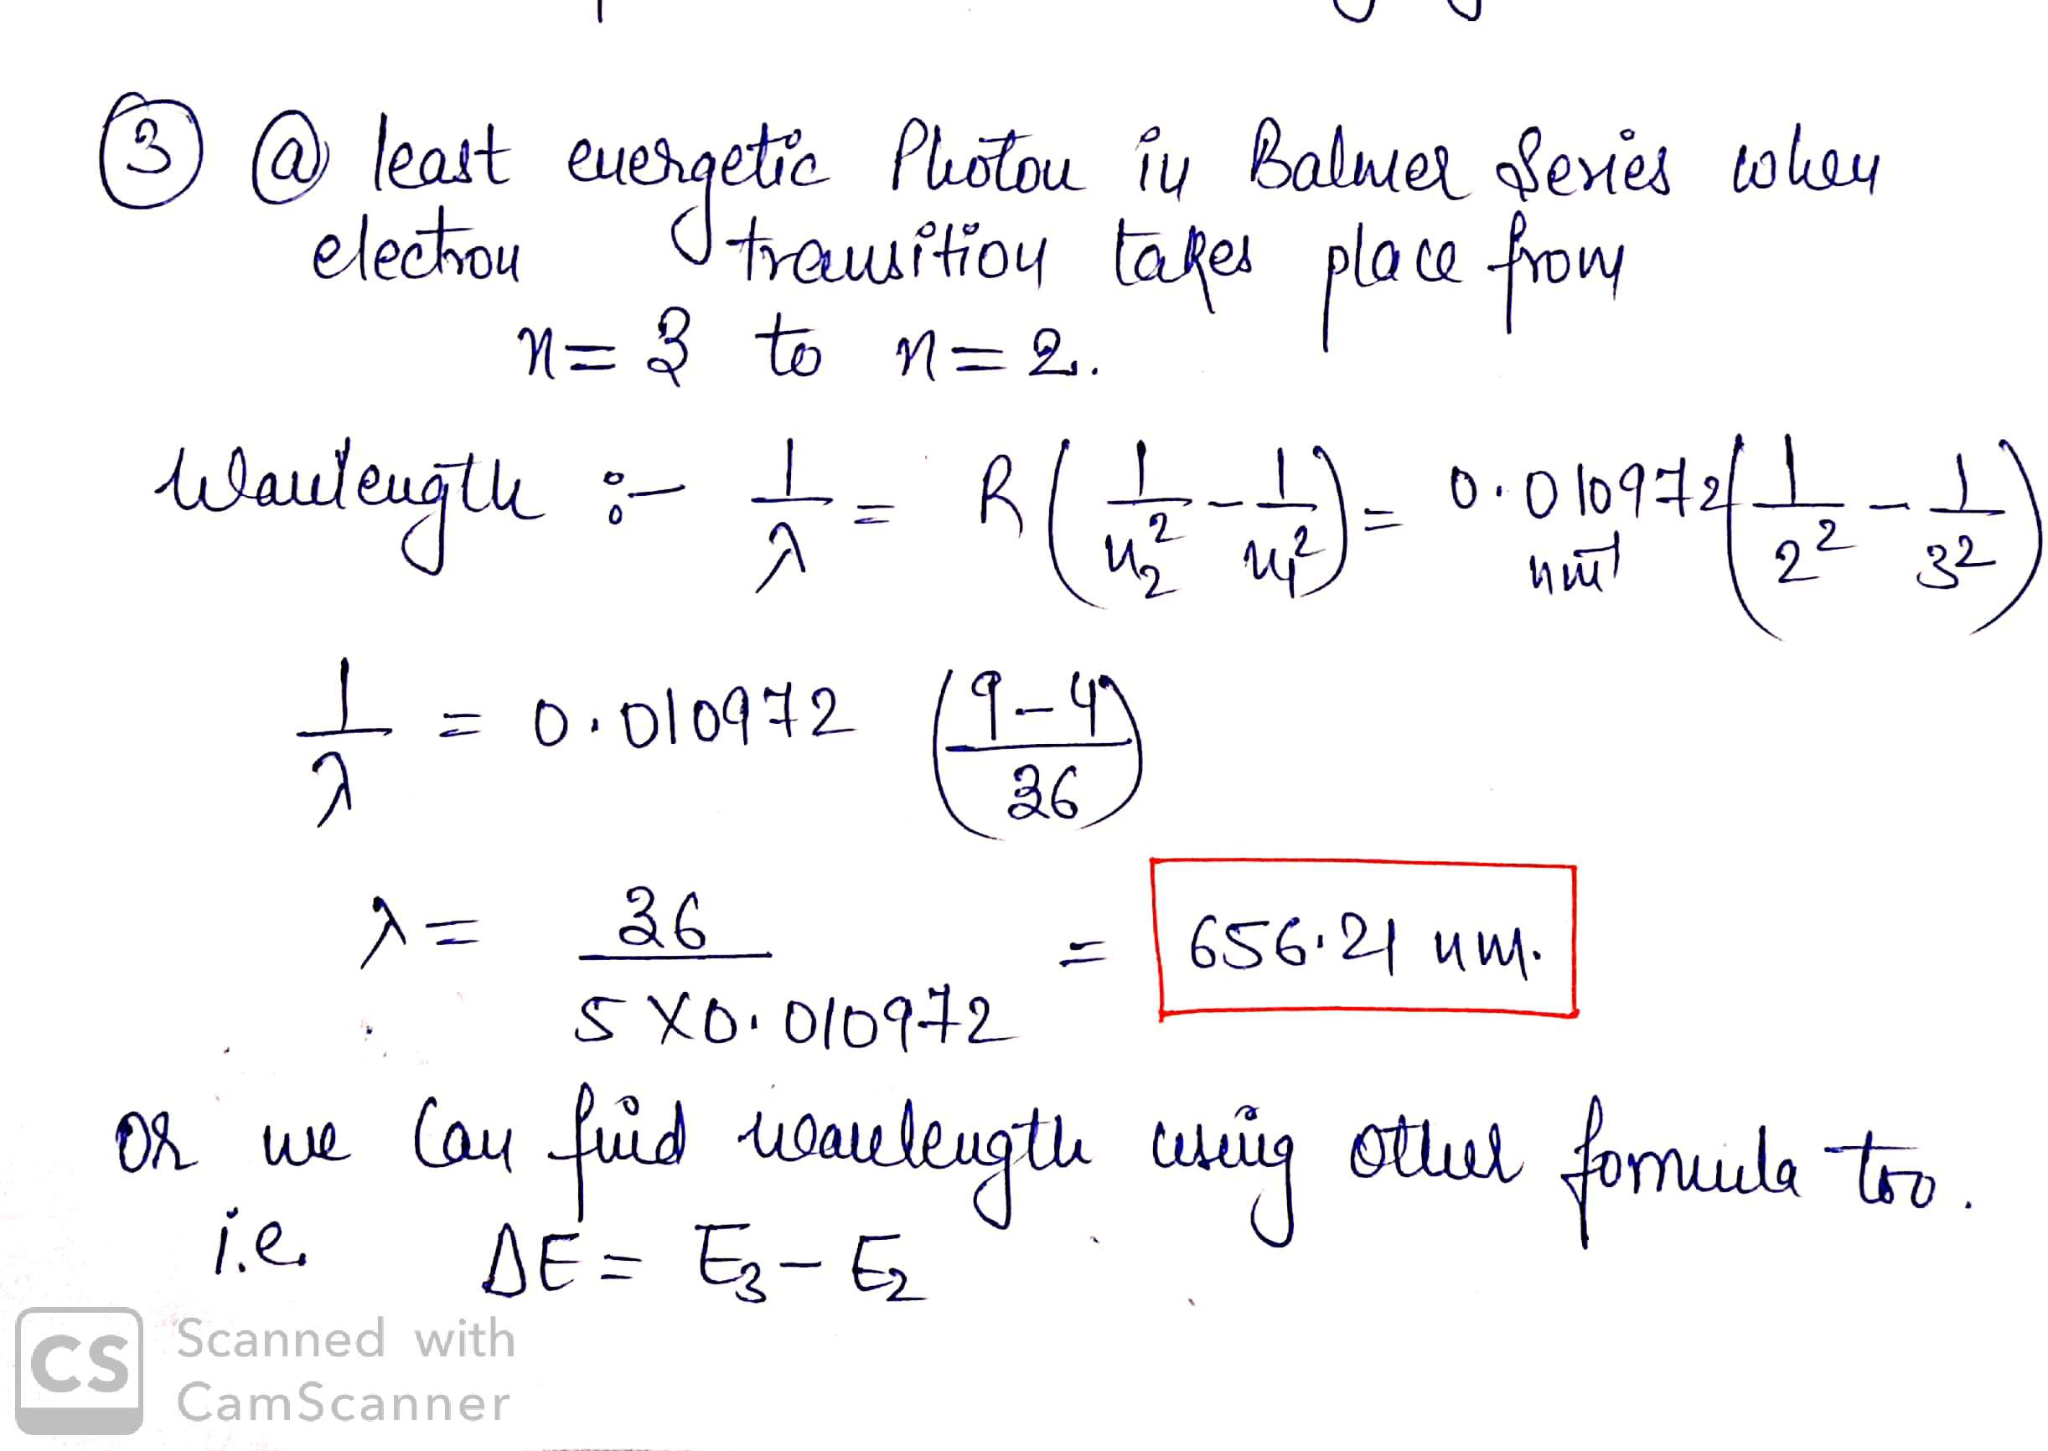 ③ ⓐ least energetic Photon in Balmer Series when
electron transition takes place from
n = 3 to n = 2.
Wavelength :- 1/λ = R(1/n₂² - 1/n₁²) = 0.010972 nm⁻¹ (1/2² - 1/3²)
1/λ = 0.010972 ((9-4)/36)
λ = 36/(5 X 0.010972) = 656.21 nm.
or we can find wavelength using other formula too.
i.e. ΔE = E₃ - E₂
CS Scanned with
CamScanner